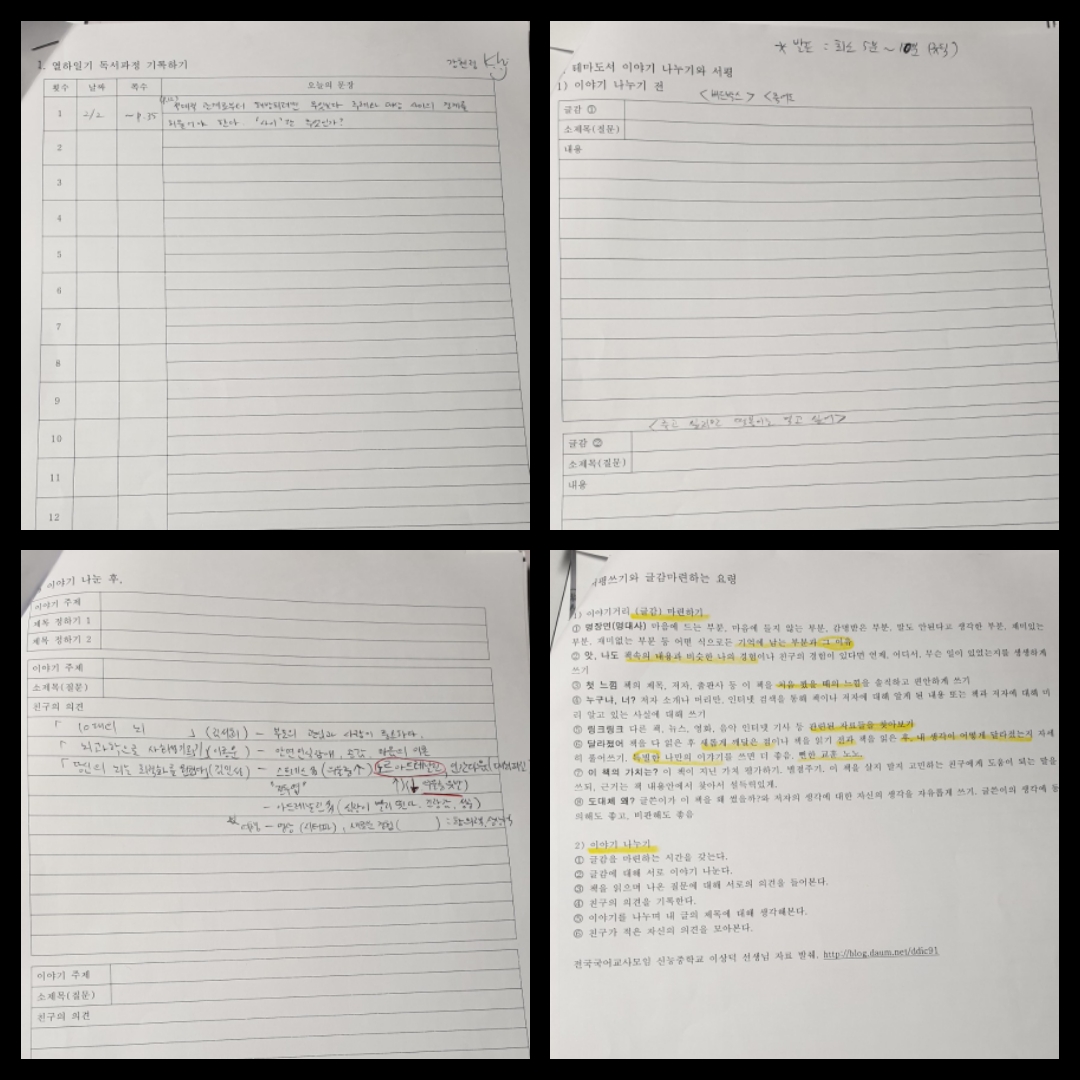 1. 열하일기 독서과정 기록하기
횟수 날짜 쪽수 오늘의 문장
1 2/2 ~p.35
하는이야 한다. '사이'란 무엇인가?
2
3
4
5
6
7
8
9
10
11
12
* 발표 : 최소 5분 ~ 10분
테마도서 이야기 나누기와 서평
1) 이야기 나누기 전
<버드박스>
글감 ①
소제목(질문)
내용
<죽고 싶지만 떡볶이는 먹고 싶어>
글감 ②
소제목(질문)
내용
이야기 나눈 후,
이야기 주제
제목 정하기 1
제목 정하기 2
이야기 주제
소제목(질문)
친구의 의견
「10대의 뇌」 - 부모의 관심과 사랑이 필요하다.
「뇌과학으로 사회성 기르기」
이야기 주제
소제목(질문)
친구의 의견
서평쓰기와 글감마련하는 요령
1) 이야기거리 (글감) 마련하기
① 명장면(명대사) 마음에 드는 부분, 마음에 들지 않는 부분, 감명받은 부분, 말도 안된다고 생각한 부분, 재미있는
부분, 재미없는 부분 등 어떤 식으로든 기억에 남는 부분과 그 이유
② 앗, 나도 책속의 내용과 비슷한 나의 경험이나 친구의 경험이 있다면 언제, 어디서, 무슨 일이 있었는지를 생생하게
쓰기
③ 첫 느낌 책의 제목, 저자, 출판사 등 이 책을 처음 봤을 때의 느낌을 솔직하고 편안하게 쓰기
④ 누구냐, 너? 저자 소개나 머리말, 인터넷 검색을 통해 책이나 저자에 대해 알게 된 내용 또는 책과 저자에 대해 미
리 알고 있는 사실에 대해 쓰기
⑤ 링크링크 다른 책, 뉴스, 영화, 음악 인터넷 기사 등 관련된 자료들을 찾아보기
⑥ 달라졌어 책을 다 읽은 후 새롭게 깨달은 점이나 책을 읽기 전과 책을 읽은 후, 내 생각이 어떻게 달라졌는지 자세
히 풀어쓰기. 특별한 나만의 이야기를 쓰면 더 좋음. 뻔한 교훈 노노.
⑦ 이 책의 가치는? 이 책이 지닌 가치 평가하기, 별점주기, 이 책을 살지 말지 고민하는 친구에게 도움이 되는 말을
쓰되, 근거는 책 내용안에서 찾아서 설득력있게.
⑧ 도대체 왜? 글쓴이가 이 책을 왜 썼을까?와 저자의 생각에 대한 자신의 생각을 자유롭게 쓰기. 글쓴이의 생각에 동
의해도 좋고, 비판해도 좋음
2) 이야기 나누기
① 글감을 마련하는 시간을 갖는다.
② 글감에 대해 서로 이야기 나눈다.
③ 책을 읽으며 나온 질문에 대해 서로의 의견을 들어본다.
④ 친구의 의견을 기록한다.
⑤ 이야기를 나누며 내 글의 제목에 대해 생각해본다.
⑥ 친구가 적은 자신의 의견을 모아본다.
전국국어교사모임 신능중학교 이상덕 선생님 자료 발췌. http://blog.daum.net/ddic91